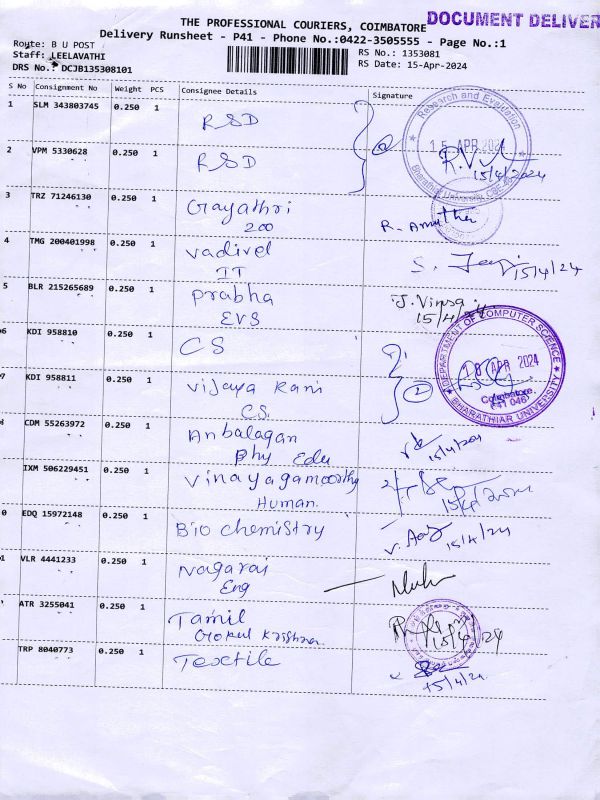 THE PROFESSIONAL COURIERS, COIMBATORE
DOCUMENT DELIVER
Delivery Runsheet - P41 - Phone No.:0422-3505555 - Page No.:1
Route: B U POST
Staff: LEELAVATHI
DRS No.: DCJB135308101
RS No.: 1353081
RS Date: 15-Apr-2024
S No Consignment No Weight PCS Consignee Details Signature
1 SLM 343803745 0.250 1 RSD
Research and Evaluation
15 APR 2024
Bharathiar University
2 VPM 5330628 0.250 1 RSD
15/4/2024
3 TRZ 71246130 0.250 1 Gayathri
200
R. Amutha
4 TMG 200401998 0.250 1 Vadivel
IT
15/4/24
5 BLR 215265689 0.250 1 Prabha
EVS
15/4/24
6 KDI 958810 0.250 1 CS
DEPARTMENT OF COMPUTER SCIENCE
APR 2024
Coimbatore
641 046
BHARATHIAR UNIVERSITY
7 KDI 958811 0.250 1 Vijaya Rani
CS. 2
CDM 55263972 0.250 1 Anbalagan
Phy Edu
15/4/2024
IXM 506229451 0.250 1 Vinayagamoorthy
Human.
0 EDQ 15972148 0.250 1 Bio chemistry
15/4/24
1 VLR 4441233 0.250 1 Nagaraj
Eng
ATR 3255041 0.250 1 Tamil
Gokul Krishna
15/4/24
TRP 8040773 0.250 1 Textile
15/4/24